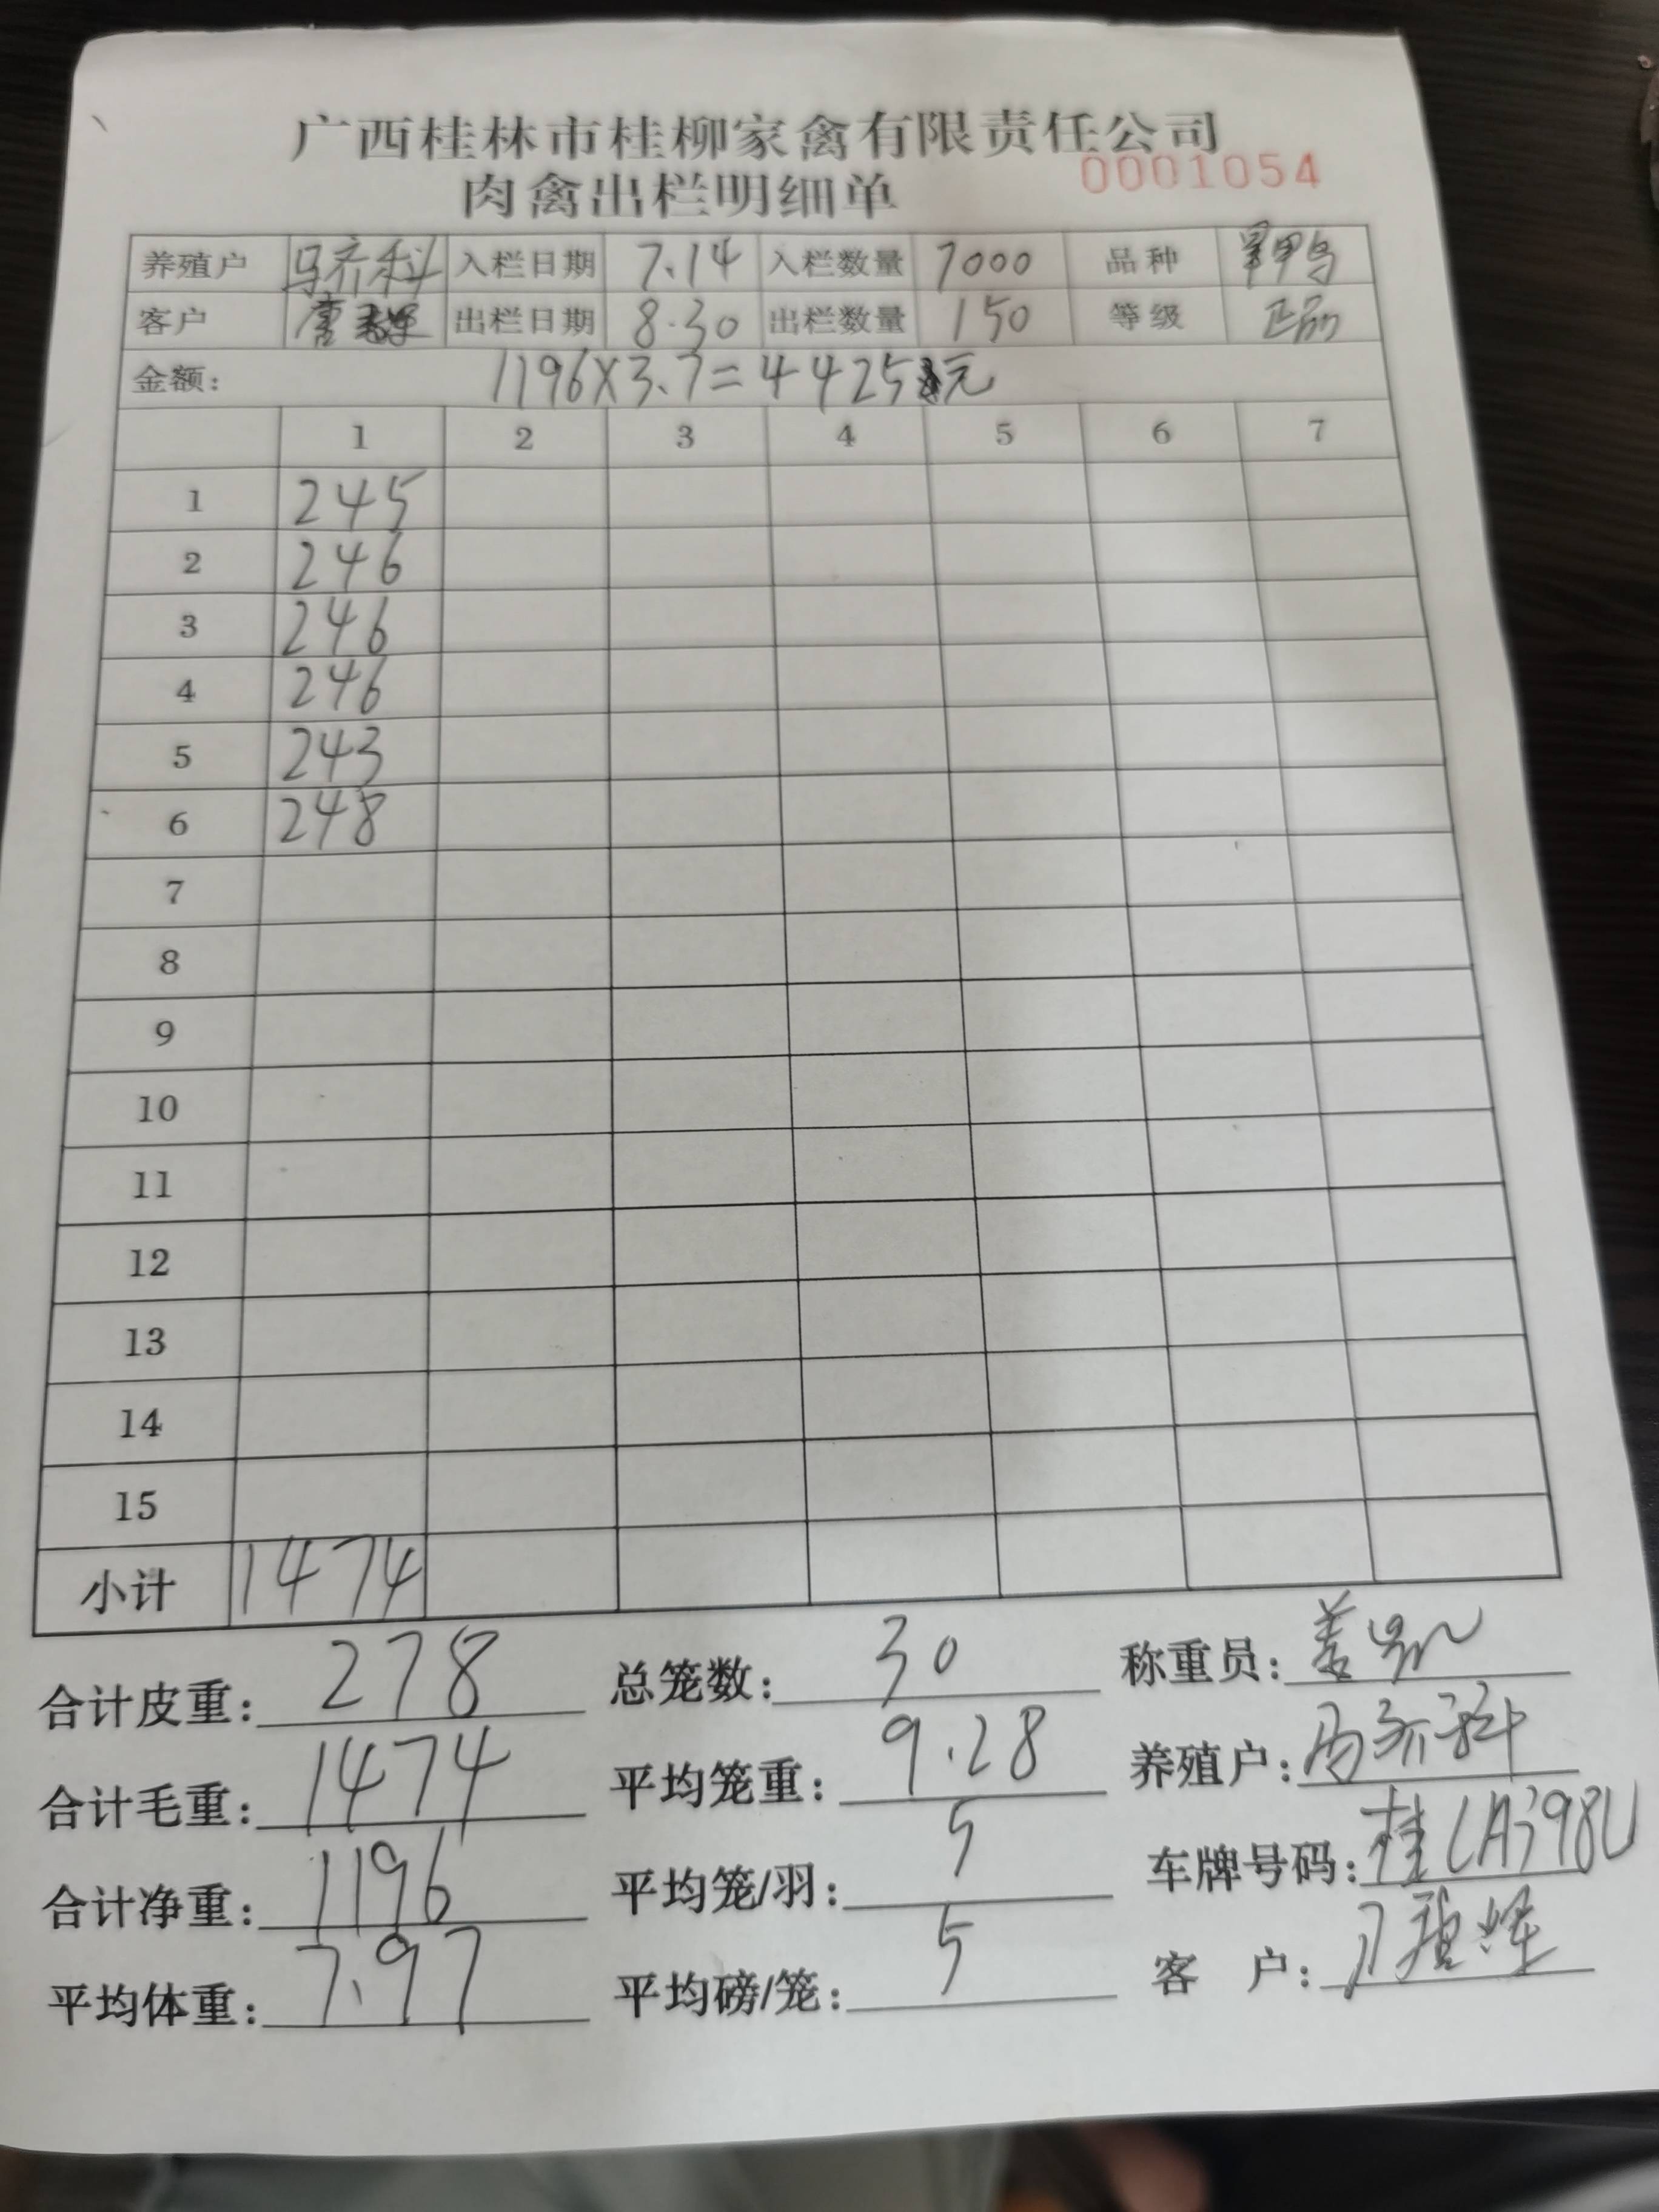 广西桂林市桂柳家禽有限责任公司
0001054
肉禽出栏明细单
养殖户 马齐科 入栏日期 7.14 入栏数量 7000 品种
客户 唐 出栏日期 8.30 出栏数量 150 等级 正品
金额: 1196×3.7=4425元
1 2 3 4 5 6 7
1 245
2 246
3 246
4 246
5 243
6 248
7
8
9
10
11
12
13
14
15
小计 1474
合计皮重: 278 总笼数: 30 称重员:
合计毛重: 1474 平均笼重: 9.28 养殖户: 马齐科
合计净重: 1196 平均笼/羽: 5 车牌号码: 桂
平均体重: 7.97 平均磅/笼: 5 客 户: